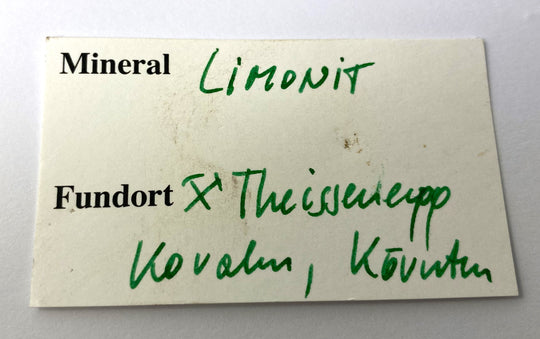 Mineral LIMONIT
Fundort Theissenegg
Kärnten